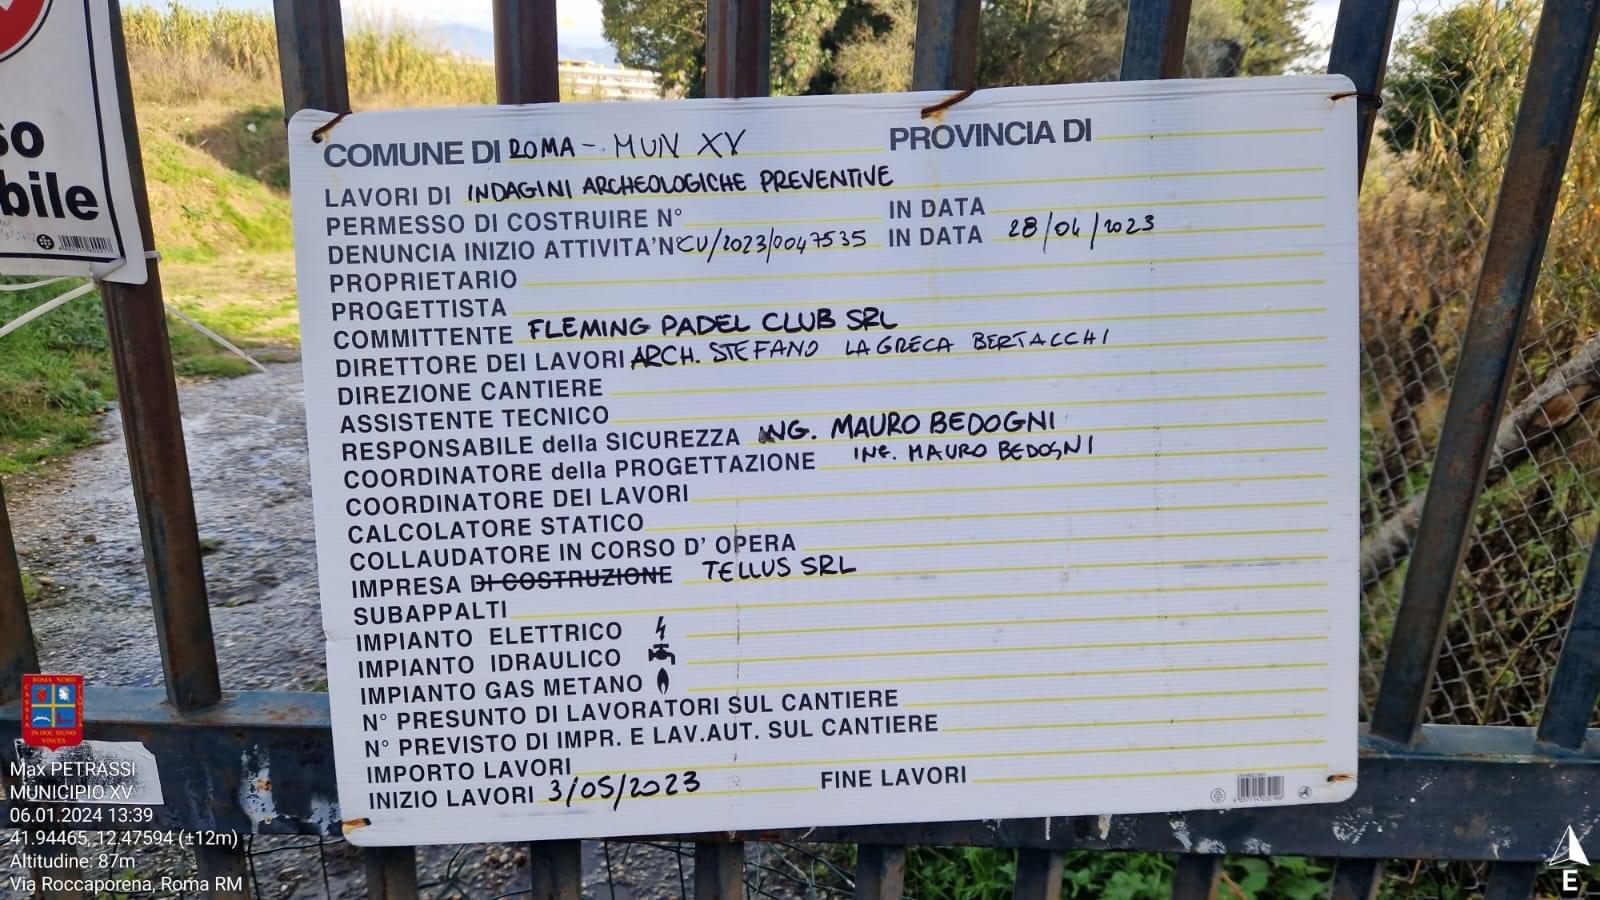 so
bile
COMUNE DI ROMA - MUN XV PROVINCIA DI
LAVORI DI INDAGINI ARCHEOLOGICHE PREVENTIVE
PERMESSO DI COSTRUIRE N° IN DATA
DENUNCIA INIZIO ATTIVITA' N° CU/2023/0047535 IN DATA 28/04/2023
PROPRIETARIO
PROGETTISTA
COMMITTENTE FLEMING PADEL CLUB SRL
DIRETTORE DEI LAVORI ARCH. STEFANO LA GRECA BERTACCHI
DIREZIONE CANTIERE
ASSISTENTE TECNICO
RESPONSABILE della SICUREZZA ING. MAURO BEDOGNI
COORDINATORE della PROGETTAZIONE ING. MAURO BEDOGNI
COORDINATORE DEI LAVORI
CALCOLATORE STATICO
COLLAUDATORE IN CORSO D' OPERA
IMPRESA DI COSTRUZIONE TELLUS SRL
SUBAPPALTI
IMPIANTO ELETTRICO
IMPIANTO IDRAULICO
IMPIANTO GAS METANO
N° PRESUNTO DI LAVORATORI SUL CANTIERE
N° PREVISTO DI IMPR. E LAV.AUT. SUL CANTIERE
IMPORTO LAVORI
INIZIO LAVORI 3/05/2023 FINE LAVORI
ROMA NORD
CASSIA
IN HOC SIGNO
VINCES
Max PETRASSI
MUNICIPIO XV
06.01.2024 13:39
41.94465, 12.47594 (±12m)
Altitudine: 87m
Via Roccaporena, Roma RM
E